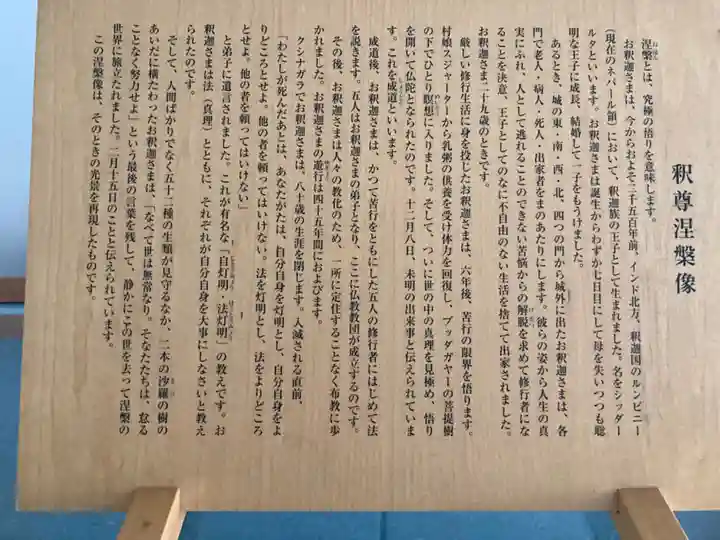 釈尊涅槃像
涅槃とは、究極の悟りを意味します。
お釈迦さまは、今からおよそ二千五百年前、インド北方、釈迦国のルンビニー
(現在のネパール領)において、釈迦族の王子として生まれました。名をシッダー
ルタといいます。お釈迦さまは誕生からわずか七日目にして母を失いつつも聡
明な王子に成長、結婚して一子をもうけました。
あるとき、城の東・南・西・北、四つの門から城外に出たお釈迦さまは、各
門で老人・病人・死人・出家者をまのあたりにします。彼らの姿から人生の真
実にふれ、人として逃れることのできない苦悩からの解脱を求めて修行者にな
ることを決意、王子としてのなに不自由のない生活を捨てて出家されました。
お釈迦さま二十九歳のときです。
厳しい修行生活に身を投じたお釈迦さまは、六年後、苦行の限界を悟ります。
村娘スジャーターから乳粥の供養を受け体力を回復し、ブッダガヤーの菩提樹
の下でひとり瞑想に入りました。そして、ついに世の中の真理を見極め、悟り
を開いて仏陀となられたのです。十二月八日、未明の出来事と伝えられていま
す。これを成道といいます。
成道後、お釈迦さまは、かつて苦行をともにした五人の修行者にはじめて法
を説きます。五人はお釈迦さまの弟子となり、ここに仏教教団が成立するのです。
その後、お釈迦さまは人々の教化のため、一所に定住することなく布教に歩
かれました。お釈迦さまの遊行は四十五年間におよびます。
クシナガラでお釈迦さまは、八十歳の生涯を閉じます。入滅される直前、
「わたしが死んだあとは、あなたがたは、自分自身を灯明とし、自分自身をよ
りどころとせよ。他の者を頼ってはいけない。法を灯明とし、法をよりどころ
とせよ。他の者を頼ってはいけない」
と弟子に遺言されました。これが有名な「自灯明・法灯明」の教えです。お
釈迦さまは法(真理)とともに、それぞれが自分自身を大事にしなさいと教え
られたのです。
そして、人間ばかりでなく五十二種の生類が見守るなか、二本の沙羅の樹の
あいだに横たわったお釈迦さまは、「なべて世は無常なり。そなたたちは、怠る
ことなく努力せよ」という最後の言葉を残して、静かにこの世を去って涅槃の
世界に旅立たれました。二月十五日のことと伝えられています。
この涅槃像は、そのときの光景を再現したものです。